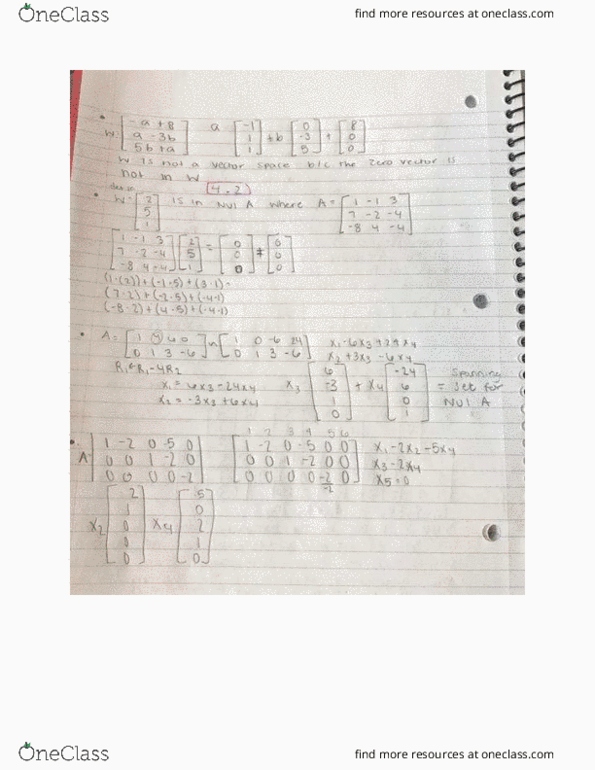 OneClass find more resources at oneclass.com
W: [-a + 8; a - 3b; 5b + a] a [-1; 1; 1] + b [0; -3; 5] + [8; 0; 0]
W is not a vector space b/c the zero vector is
not in W
4.2
W = [2; 5; 1] is in Nul A where A = [1 -1 3; 7 -2 -4; -8 4 -4]
[1 -1 3; 7 -2 -4; -8 4 -4] [2; 5; 1] = [0; 0; 0] ≠ [0; 0; 0]
(1·(2)) + (-1·5) + (3·1) =
(7·2) + (-2·5) + (-4·1)
(-8·2) + (4·5) + (-4·1)
A = [1 4 6 0; 0 1 3 -6] ~ [1 0 -6 24; 0 1 3 -6] x1 - 6x3 + 24x4
x2 + 3x3 - 6x4
R1 - 4R2
x1 = 6x3 - 24x4
x2 = -3x3 + 6x4
x3 [6; -3; 1; 0] + x4 [-24; 6; 0; 1] = Spanning set for Nul A
A [1 -2 0 -5 0; 0 0 1 -2 0; 0 0 0 0 -2]
1 2 3 4 5 6
[1 -2 0 -5 0 0; 0 0 1 -2 0 0; 0 0 0 0 -2 0]
-2
x1 - 2x2 - 5x4
x3 - 2x4
x5 = 0
x2 [2; 1; 0; 0; 0] x4 [5; 0; 2; 1; 0]
OneClass find more resources at oneclass.com